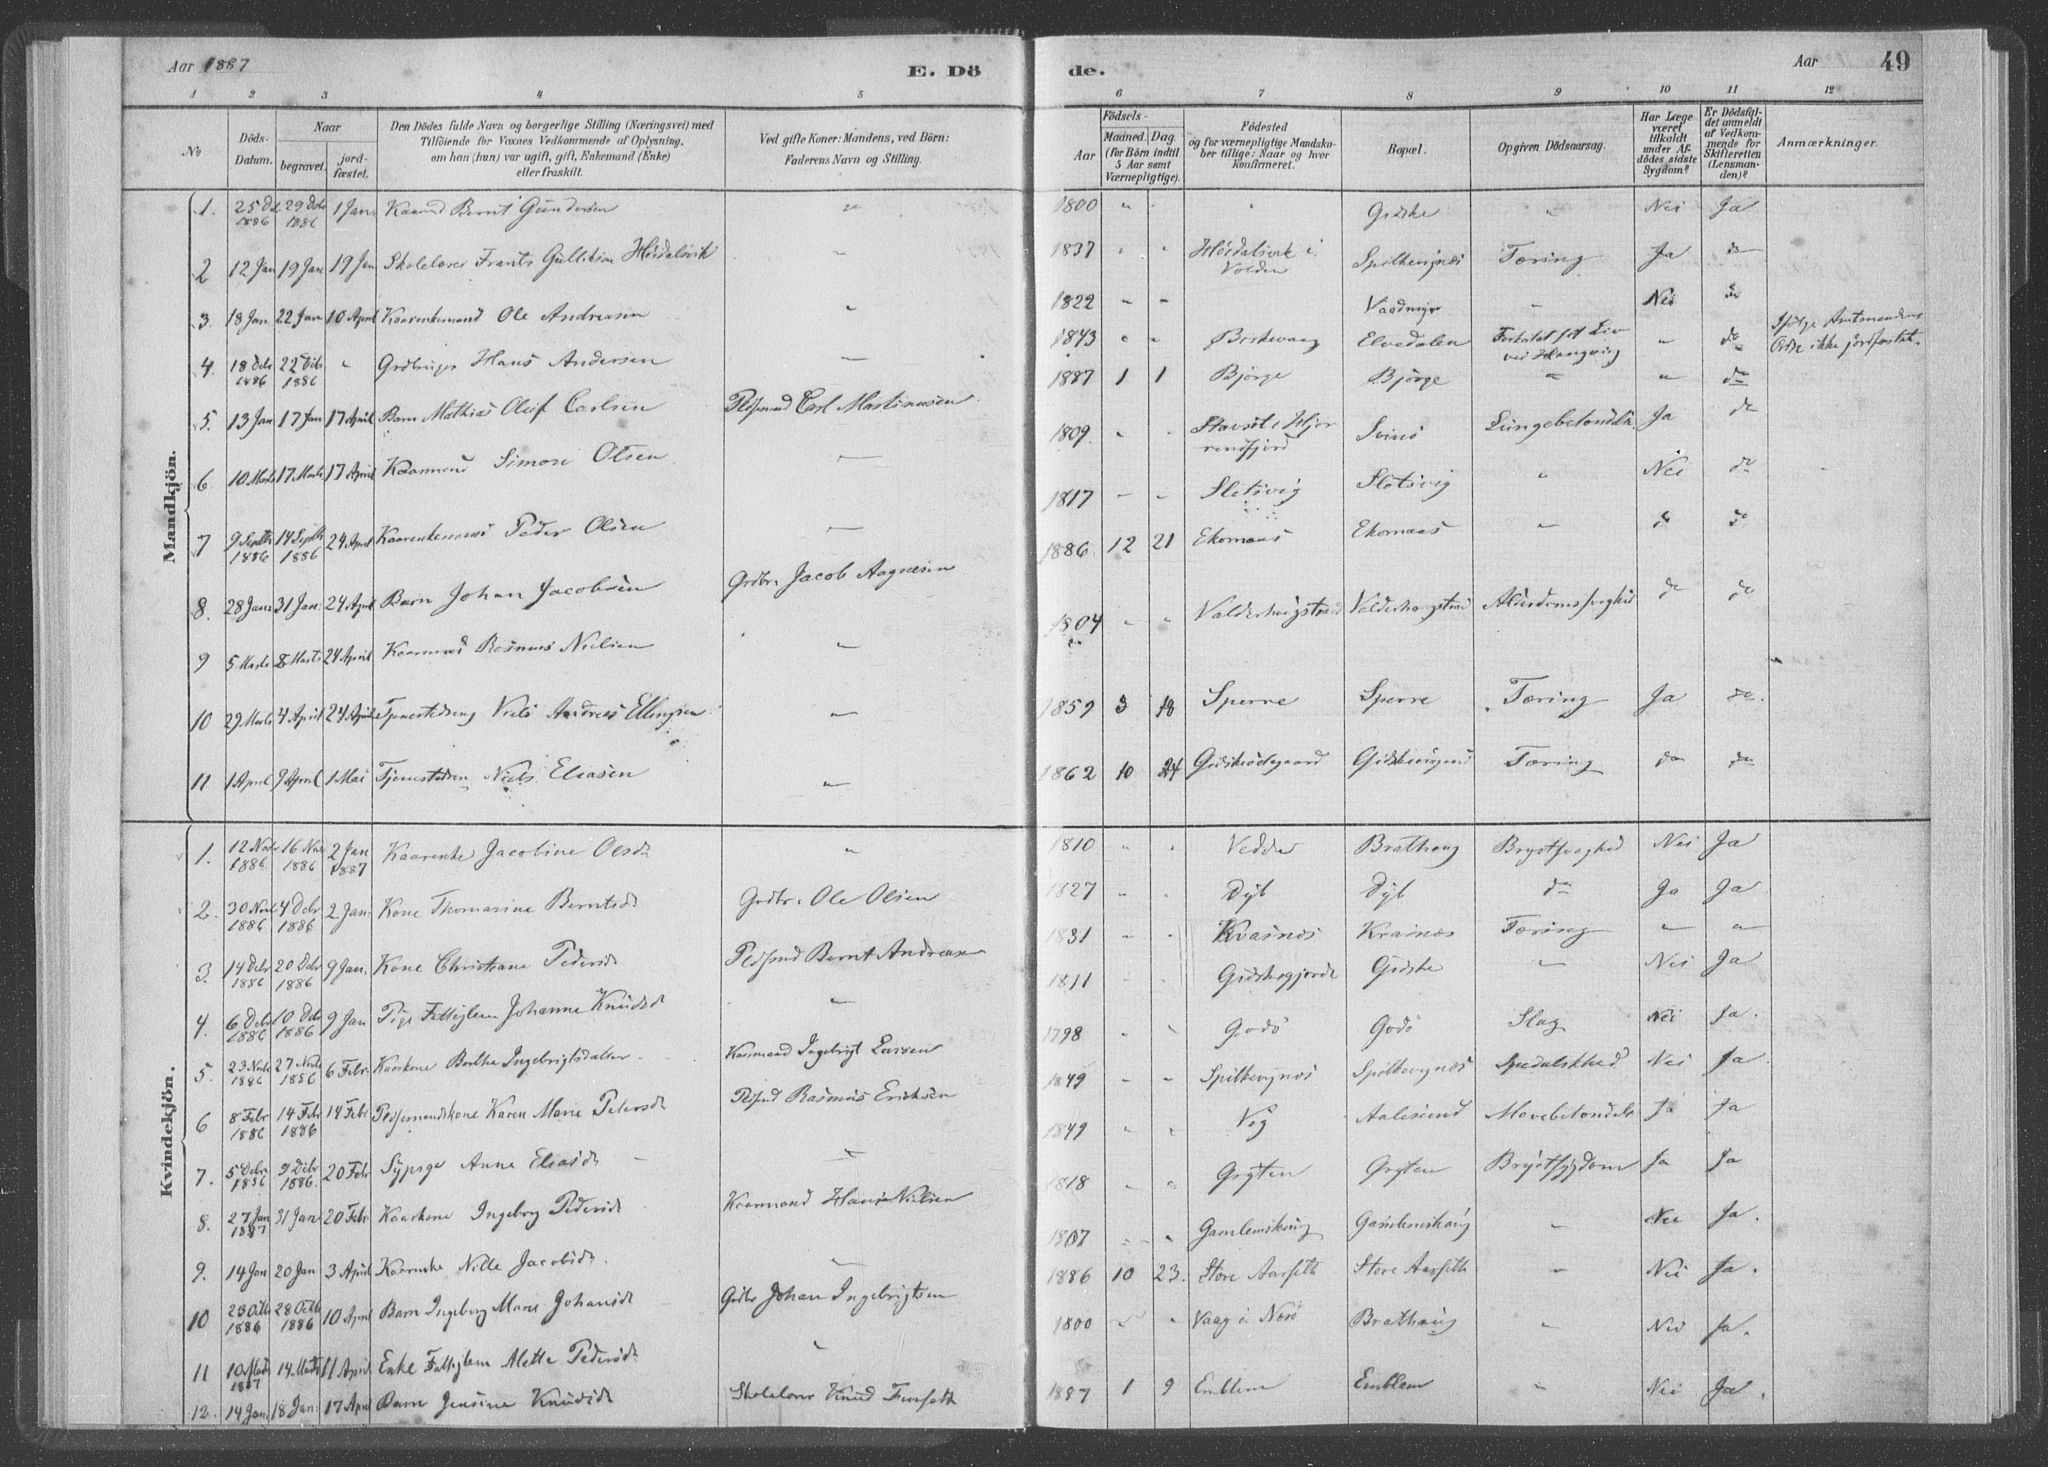 Aar 1887 E. Dö de. Aar 49
1 2 3 4 5 6 7 8 9 10 11 12
№
Döds-Datum.
Naar
begravet. jordfæstet.
Den Dödes fulde Navn og borgerlige Stilling (Næringsvei) med
Tilföiende for Voxnes Vedkommende af Oplysning,
om han (hun) var ugift, gift, Enkemand (Enke)
eller fraskilt.
Ved gifte Koner: Mandens, ved Börn:
Faderens Navn og Stilling.
Födsels-
Aar
Maaned. Dag.
(for Börn indtil
5 Aar samt
Værnepligtige).
Födested
og for værnepligtige Mandskaber tillige: Naar og hvor
konfirmeret.
Bopæl.
Opgiven Dödsaarsag.
Har Læge
været
tilkaldt
under Afdödes sidste
Sygdom?
Er Dödsfaldet anmeldt
af Vedkommende for
Skifteretten
(Lensmanden)?
Anmærkninger.
Mandkjön.
1. 25 Dec 1886 29 Debr 1886 1 Jan. Bernt Gundersen " 1800 " " " Gidske " Nei Ja
2 12 Jan 19 Jan 19 Jan Skolelærer Frants Gulliksen Hösdalsvik " 1837 " " Hösdalsvik i Volden Spilkevignæs Tæring Ja do
3. 18 Jan 22 Jan 10 April Kaarenkemand Ole Andreasen " 1822 " " " Nei do
4. 18 Debr 1886 22 Debr 1886 " Grdbruger Hans Andersen — 1843 " " Elvedalen " do ikke jordfæstet.
5. 13 Jan 17 Jan 17 April Barn Mathias Oluf Carlsen Carl Martinusen 1887 1 1 Bjørge Bjørge " " do
6 10 Marts 17 Marts 17 April Kaarmand Simon Olsen — 1809 " " Svinö Ja do
7 9 Septbr 1886 14 Septbr 1886 24 April Kaarenkemand Peder Olsen — 1817 " " Slotsvig Slotsvig " Nei do
8. 28 Jan 31 Jan 24 April Barn Johan Jacobsen Grdbr. Jacob Aagnesen 1886 12 21 Ekornaas Ekornaas " do do
9 5 Marts 8 Marts 24 April Kaarmand Rasmus Nielsen " 1804 " " Valderhougstrand Valderhougstrand Alderdomssvaghed do do
10 29 Marts 4 April 24 April Niels Andreas Ellingsen " 1859 3 18 Sperre Sperre Tæring Ja do.
11 1 April 9 April 1 Mai Niels Eliasen " 1862 10 24 Tæring do do
Kvindekjön.
1. 12 Novbr 1886 16 Nov 1886 2 Jan 1887 Kaarenke Jacobine Olsdr " 1810 " " Vedde Brathoug Brystsvaghed Nei Ja
2. 30 Nov 1886 4 Debr 1886 2 Jan. Kone Thomasine Berntsdr Grdbr. Ole Olsen 1827 " " Dyb Dyb do Ja Ja
3. 14 Debr 1886 20 Debr 1886 9 Jan. Kone Christiane Pedersdr Bernt Andreasen 1831 " " Kvasnæs Kvasnæs Tæring " "
4. 6 Debr 1886 10 Debr 1886 9 Jan Pige Fattiglem Johanne Knudsdr " 1811 " " Gidskegjerde Gidske " Nei Ja
5. 23 Novbr 1886 27 Novbr 1886 6 Febr. Kaarkone Berthe Ingebrigtsdatter Kaarmand Ingebrigt Larsen 1798 " " Godö Godö Slag Nei Ja.
6 8 Febr 1886 14 Febr 1886 14 Febr Karen Marie Petersdr Rasmus Ericksen 1849 " " Spilkevignæs Spilkevignæs Spedalskhed Nei Ja.
7. 5 Debr 1886 9 Debr 1886. 20 Febr Sypige Anne Eliasdr " 1849 " " Vig Aalesund Mavebetændelse Ja Ja
8. 27 Jan 1887 31 Jan 20 Febr Kaarkone Ingeborg Pedersdr Kaarmand Hans Nielsen 1818 " " Gryten Gryten Brystsygdom Ja Ja
9. 14 Jan 20 Jan 3 April Kaarenke Nille Jacobsdr. " 1807 " " Gamlemshoug Gamlemshoug " Nei Ja.
10 23 Octbr 1886 28 Octbr 1886 10 April Barn Ingeborg Marie Johansdr Grdbr Johan Ingebrigtsen 1886 10 23. Store Aarseth Store Aarseth " Nei Ja.
11 10 Marts 1887 14 Marts 11 April Enke Fattiglem Alette Pedersdr " 1800 " " Brathoug " Nei Ja.
12. 14 Jan. 18 Jan. 17 April Barn Jensine Knudsdr Skolelærer Knud Furseth 1887 1 9 Emblem Emblem " Nei Ja.